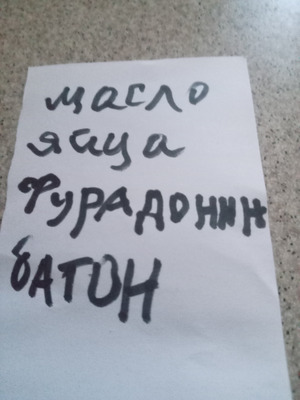 масло
яйца
ФУРАДОНИН
БАТОН